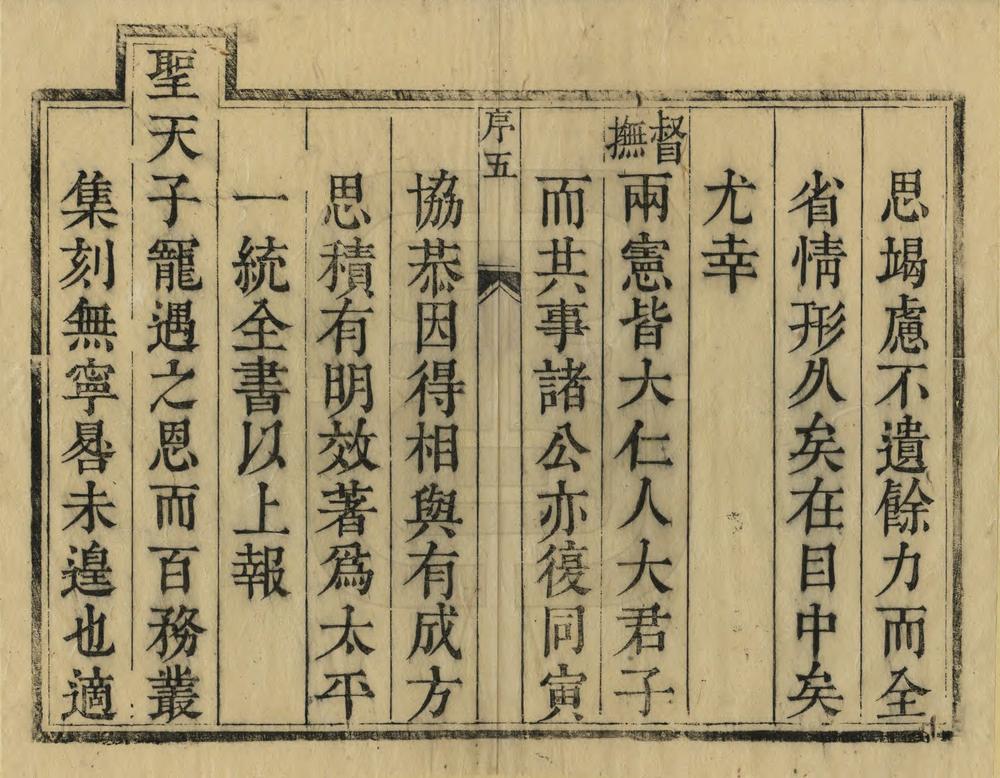 思竭慮不遺餘力而全
省情形久矣在目中矣
尤幸
督撫兩憲皆大仁人大君子
而共事諸公亦復同寅
序五
協恭因得相與有成方
思積有明效著爲太平
一統全書以上報
聖天子寵遇之恩而百務叢
集刻無寧晷未遑也適